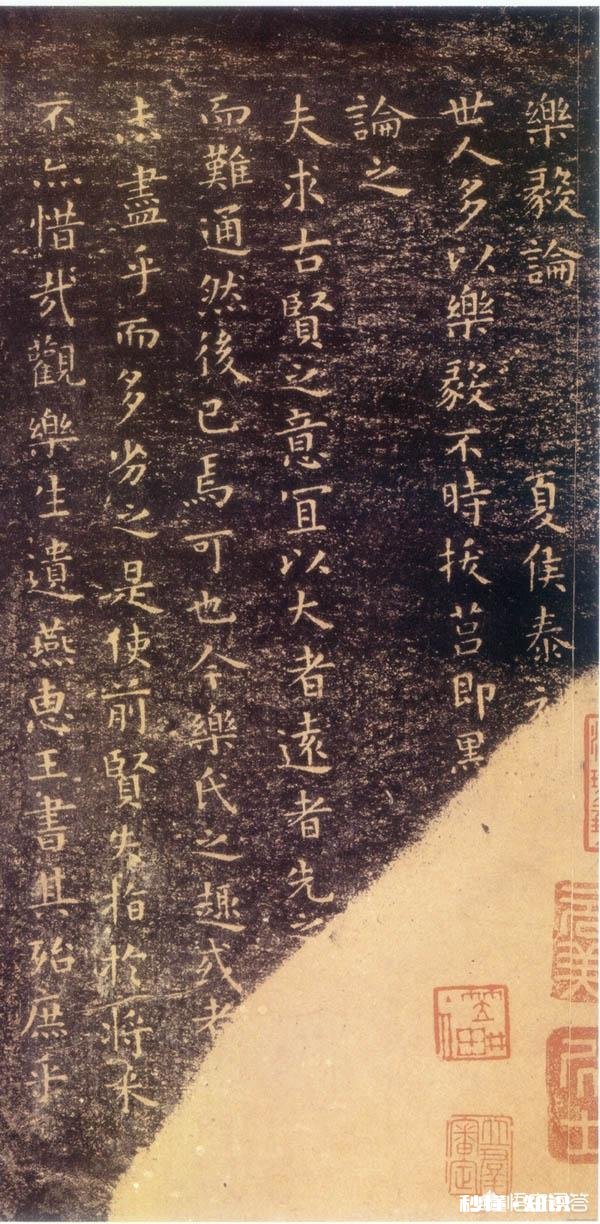 樂毅論 夏侯泰
世人多以樂毅不時拔莒即黑
論之
夫求古賢之意冝以大者遠者先之
而難通然後已焉可也今樂氏之趣或者
未盡乎而多劣之是使前賢失指於將来
不亦惜哉觀樂生遺燕惠王書其殆庶乎
秒懂知识